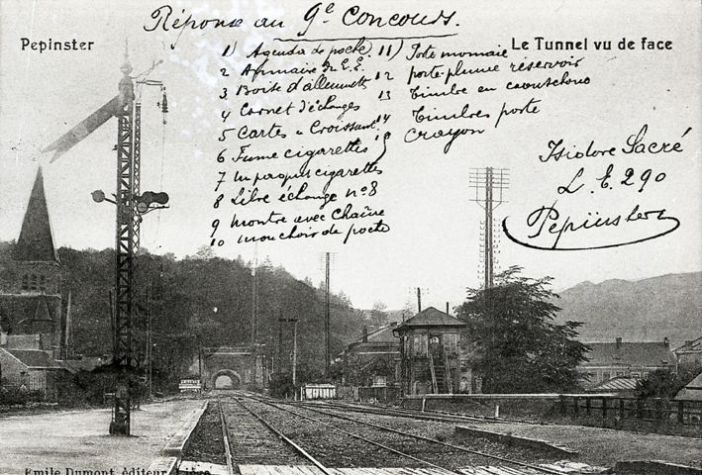 Réponse au 9e Concours.
Pepinster
Le Tunnel vu de face
1) Agenda de poche
2 Annuaire L.E.
3 Boite d'allumett
4 Carnet d'échanges
5 Cartes "Croissant"
6 Fume cigarettes
7 un paquet cigarettes
8 Libre échange no 8
9 montre avec Chaîne
10 mouchoir de poche
11) Porte monnaie
12 porte-plume réservoir
13 Timbre en caoutchouc
14 Timbres poste
15 Crayon
Isidore Sacré
L.E. 290
Pepinster
Emile Dumont, éditeur, Liège